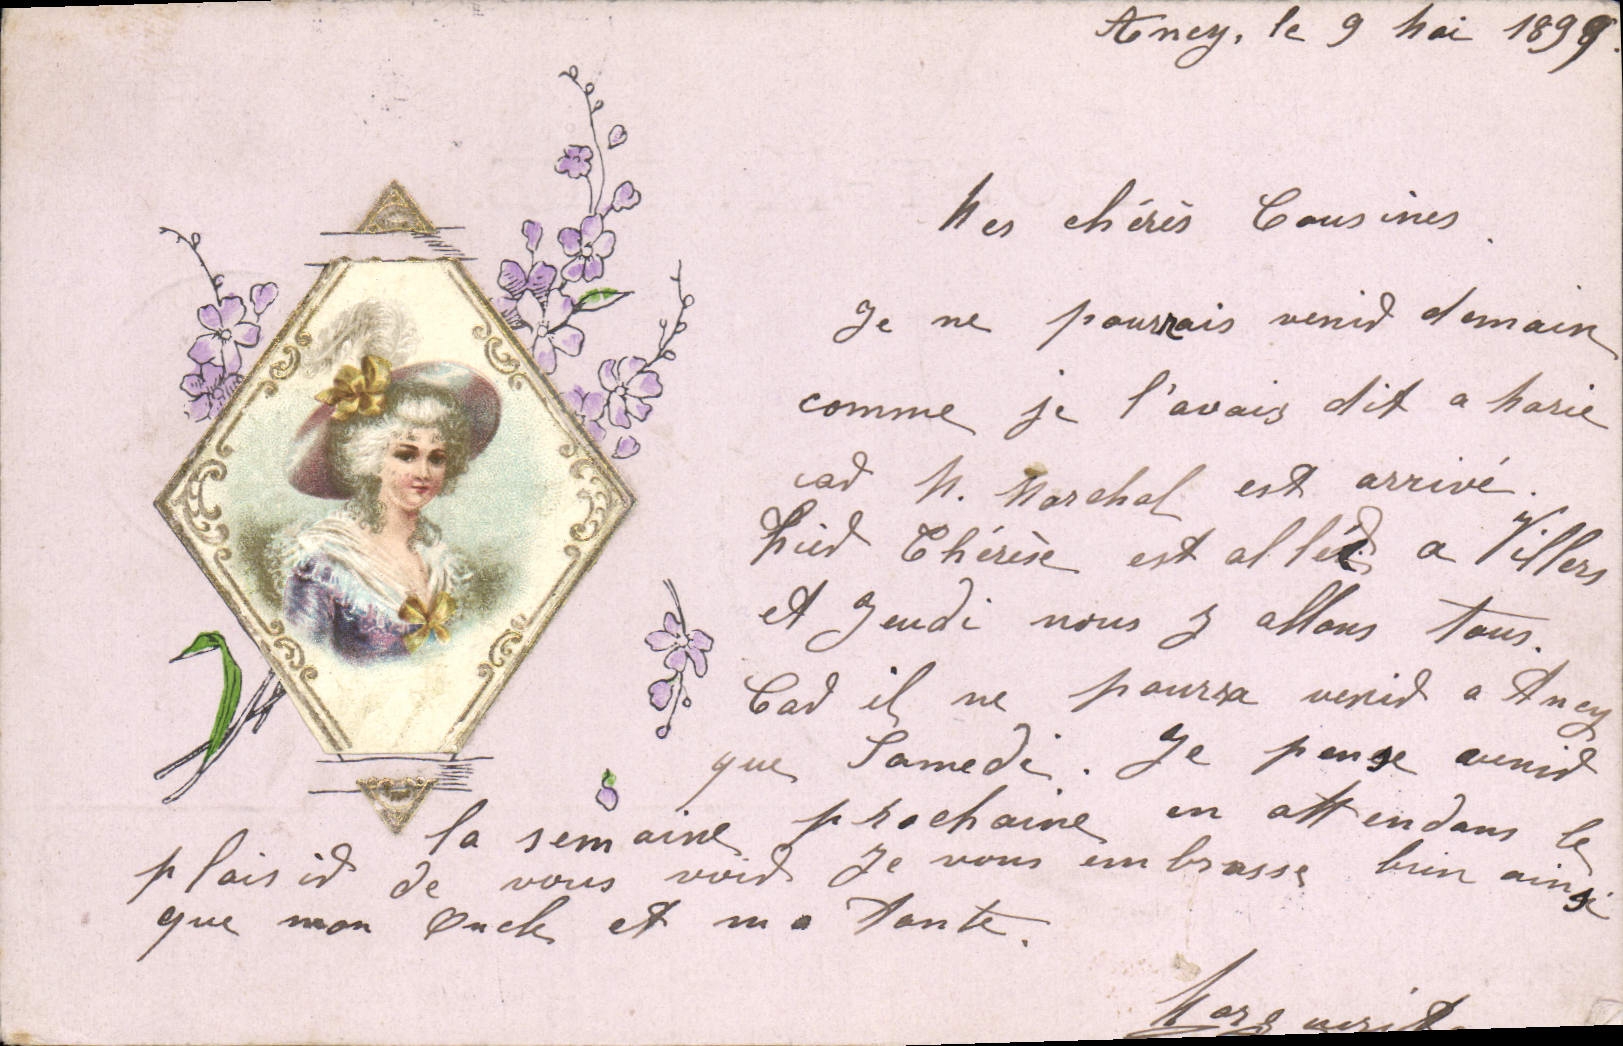 Ancy, le 9 Mai 1899.
Mes chérès Cousines.
Je ne pourrais venir demain
comme je l'avais dit a Marie
car M. Marchal est arrivé.
Hier Thérèse est allée a Villers
et Jeudi nous y allons tous.
Car il ne pourra venir a Ancy
que Samedi. Je pense venir
la semaine prochaine en attendans le
plaisir de vous voir Je vous embrasse bien ainsi
que mon Oncle et ma Tante.
Marguerite